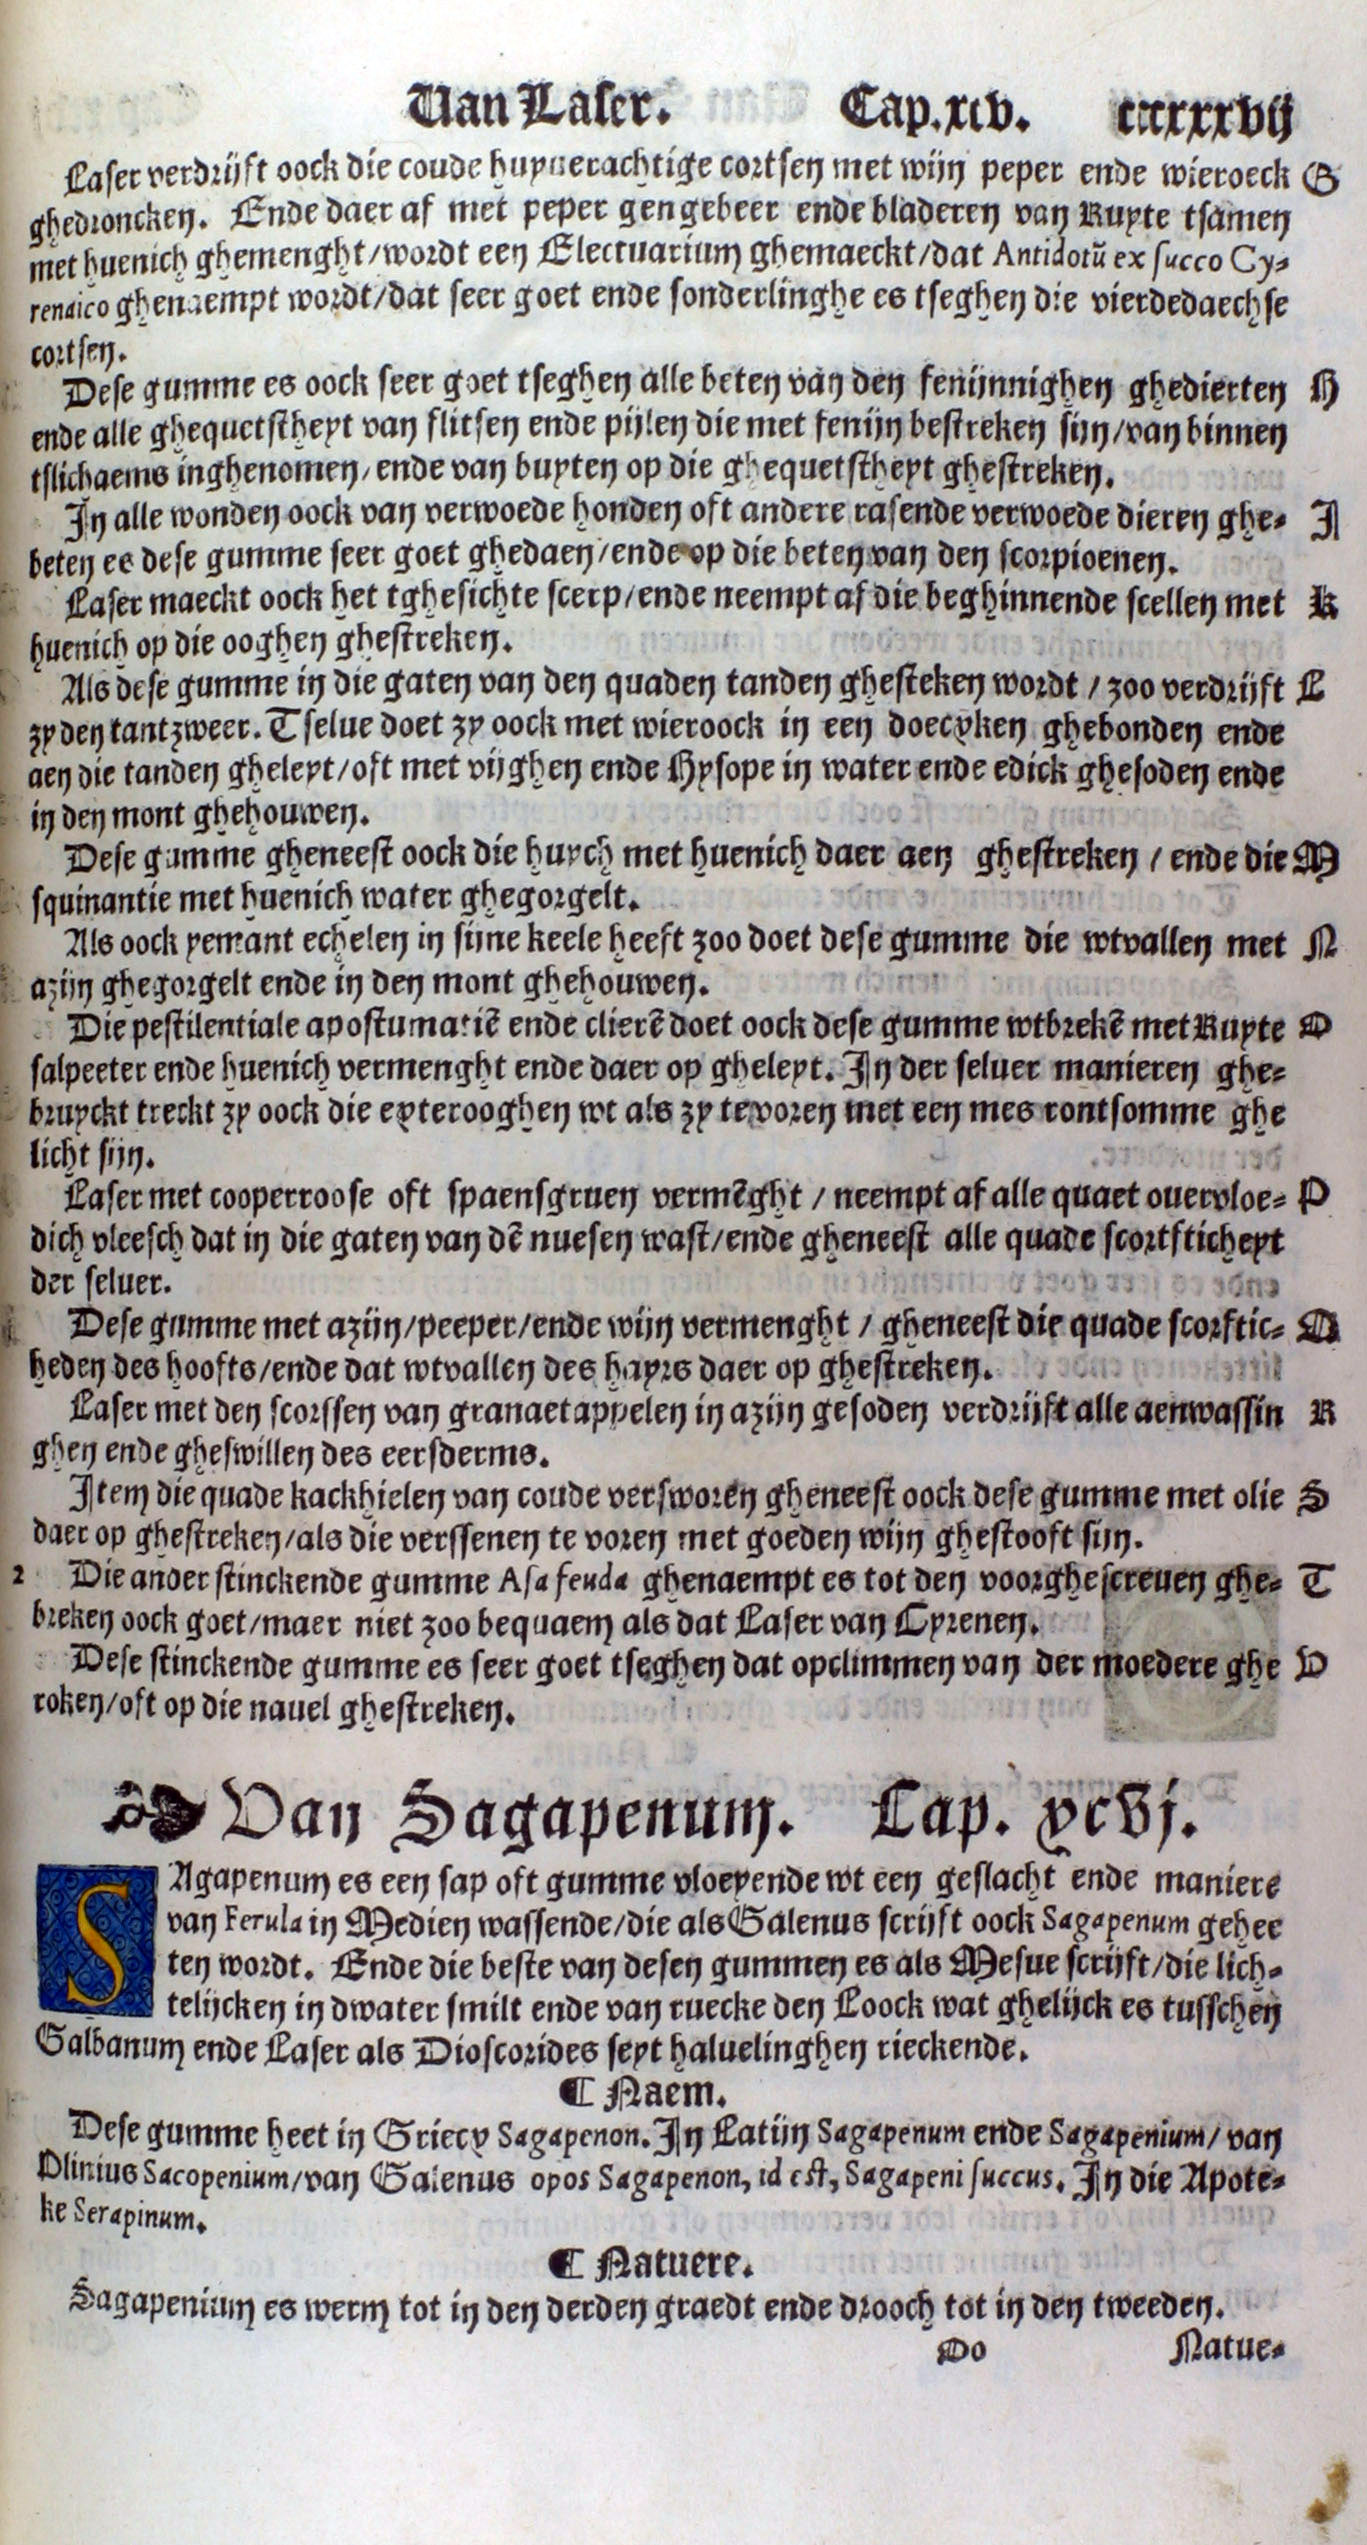 Van Laser. Cap. xcv. ccxxxvij
Laser verdrijft oock die coude huyuerachtige cortsen met wijn peper ende wieroeck G
ghedroncken. Ende daer af met peper gengebeer ende bladeren van Ruyte tsamen
met huenich ghemenght/wordt een Electuarium ghemaeckt/dat Antidotū ex succo Cy-
renaico ghenaempt wordt/dat seer goet ende sonderlinghe es tseghen die vierdedaechse
cortsen.
Dese gumme es oock seer goet tseghen alle beten van den fenijnnighen ghedierten H
ende alle ghequetstheyt van flitsen ende pijlen die met fenijn bestreken sijn/van binnen
tslichaems inghenomen/ende van buyten op die ghequetstheyt ghestreken.
In alle wonden oock van verwoede honden oft andere rasende verwoede dieren ghe- I
beten ee dese gumme seer goet ghedaen/ende op die beten van den scorpioenen.
Laser maeckt oock het tghesichte scerp/ende neempt af die beghinnende scellen met K
huenich op die ooghen ghestreken.
Als dese gumme in die gaten van den quaden tanden ghesteken wordt / zoo verdrijft L
zy den tantzweer. Tselue doet zy oock met wieroock in een doecyken ghebonden ende
aen die tanden gheleyt/oft met vijghen ende Hysope in water ende edick ghesoden ende
in den mont ghehouwen.
Dese gumme gheneest oock die huych met huenich daer aen ghestreken / ende die M
squinantie met huenich water ghegorgelt.
Als oock yemant echelen in sijne keele heeft zoo doet dese gumme die wtvallen met N
azijn ghegorgelt ende in den mont ghehouwen.
Die pestilentiale apostumatiē ende clierē doet oock dese gumme wtbrekē met Ruyte O
salpeeter ende huenich vermenght ende daer op gheleyt. In der seluer manieren ghe-
bruyckt treckt zy oock die exterooghen wt als zy te voren met een mes rontsomme ghe
licht sijn.
Laser met cooperroose oft spaensgruen vermēght / neempt af alle quaet ouervloe- P
dich vleesch dat in die gaten van dē nuesen wast/ende gheneest alle quade scortfticheyt
der seluer.
Dese gumme met azijn/peeper/ende wijn vermenght / gheneest die quade scorftic- Q
heden des hoofts/ende dat wtvallen des hayrs daer op ghestreken.
Laser met den scorssen van granaetappelen in azijn gesoden verdrijft alle aenwassin R
ghen ende gheswillen des eersderms.
Item die quade kackhielen van coude versworen gheneest oock dese gumme met olie S
daer op ghestreken/als die verssenen te voren met goeden wijn ghestooft sijn.
2 Die ander stinckende gumme Asa feuda ghenaempt es tot den voorghescreuen ghe- T
breken oock goet/maer niet zoo bequaem als dat Laser van Cyrenen.
Dese stinckende gumme es seer goet tseghen dat opclimmen van der moedere ghe V
roken/oft op die nauel ghestreken.
Van Sagapenum. Cap. xcvj.
SAgapenum es een sap oft gumme vloeyende wt een geslacht ende maniere
van Ferula in Medien wassende/die als Galenus scrijft oock Sagapenum gehee
ten wordt. Ende die beste van desen gummen es als Mesue scrijft/die lich-
telijcken in dwater smilt ende van ruecke den Loock wat ghelijck es tusschen
Galbanum ende Laser als Dioscorides seyt haluelinghen rieckende.
¶ Naem.
Dese gumme heet in Griecx Sagapenon. In Latijn Sagapenum ende Sagapenium/ van
Plinius Sacopenium/van Galenus opos Sagapenon, id est, Sagapeni succus. In die Apote-
ke Serapinum.
¶ Natuere.
Sagapenium es werm tot in den derden graedt ende drooch tot in den tweeden.
Oo Natue-